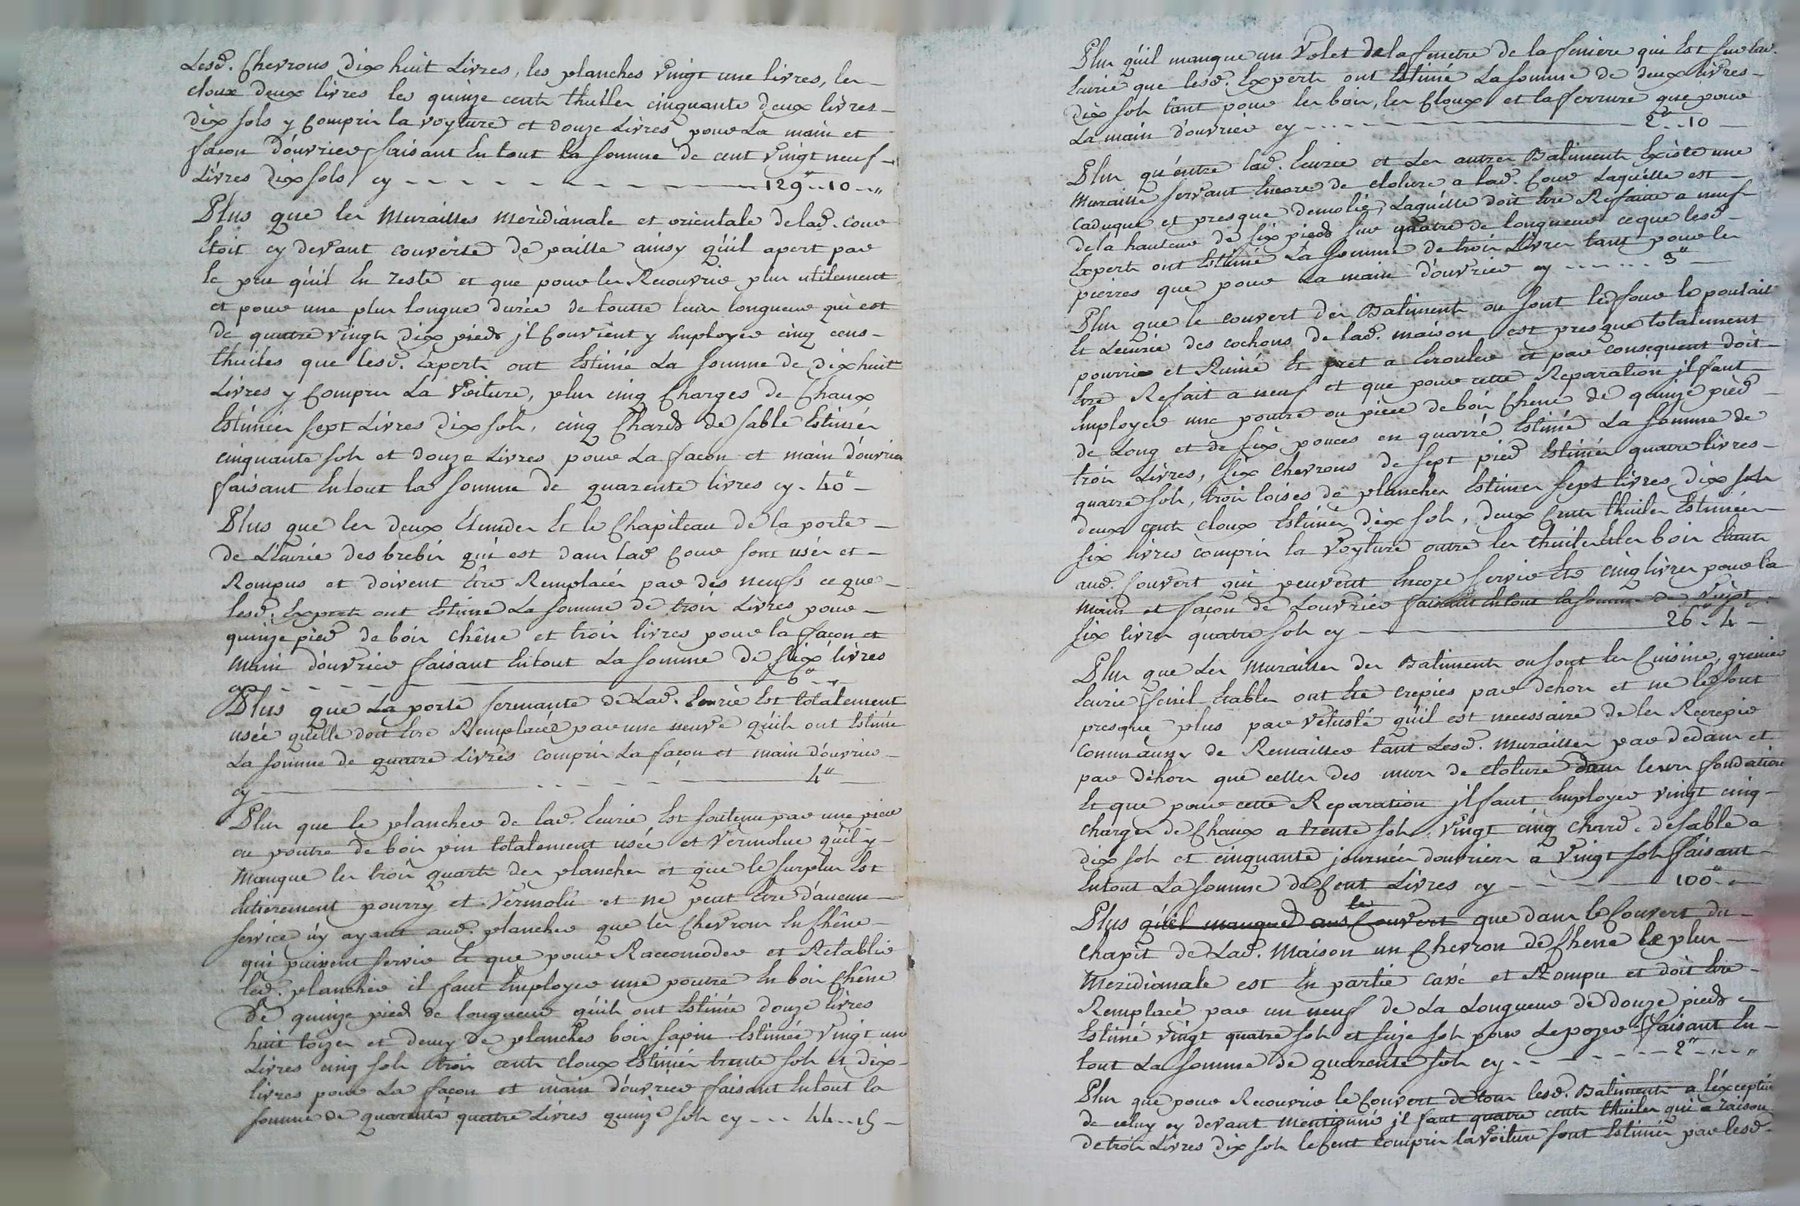 Lesd. Chevrons dix huit Livres, les planches vingt une livres, les
cloux deux livres les quinze cents thuilles cinquante deux livres
dix sols y compris la voyture et douze Livres pour La main et
façon d'ouvrier faisant En tout la somme de cent vingt neuf
Livres dix sols cy - - - 129"..10.."
Plus que les Murailles Meridianale et orientale de lad. cour
Etoit cy devant couverte de paille ainsy qu'il apert par
le peu qu'il En reste et que pour les Recouvrir plus utilement
et pour une plus longue durée de toutte leur longueur qui est
de quatre vingt dix pieds il Convient y Employer cinq cens
thuiles que lesd. Experts ont Estimé La somme de dix huit
Livres y Compris La Voiture, plus cinq Charges de Chaux
Estimées sept Livres dix sols, cinq Chards de sable Estimés
cinquante sols et douze Livres pour La façon et main d'ouvrier
faisant En tout la somme de quarente livres cy - 40" -
Plus que les deux Et le Chapiteau de la porte
de L'Ecurie des brebis qui est dans lad. Cour sont usés et
Rompus et doivent Etre Remplacés par des neufs ce que
lesd. Experts ont Estimé La somme de trois Livres pour
quinze pied de bois chêne et trois livres pour la façon et
main d'ouvrier faisant En tout La somme de six livres
cy - - - 6"
Plus que La porte fermante de Lad. Ecurie Est totalement
usée qu'elle doit Etre Remplacée par une neuve qu'ils ont Estimé
La somme de quatre Livres compris La façon et main d'ouvrier
cy - - - 4"
Plus que le plancher de lad. Ecurie Est soutenu par une piece
ou poutre de bois totalement usée et Vermolue qu'il y
Manque les trois quarts des planches et que le surplus Est
Entierement pourry et Vermolu et ne peut Etre d'aucun
service n'y ayant aud. plancher que les Chevrons En Chêne
qui puissent servir Et que pour Raccomoder et Retablir
led. plancher il faut Employer une poutre En bois Chêne
de quinze pieds de longueur qu'ils ont Estimé douze livres
huit toizes et demy de planches bois sapin Estimée vingt une
Livres cinq sols trois cents cloux Estimés trente sols et dix
livres pour La façon et main d'ouvrier faisant En tout la
somme de quarente quatre Livres quinze sols cy - - - 44..15 -
Plus qu'il manque un Volet de la fenetre de la feniere qui Est sur lad.
Ecurie que lesd. Experts ont Estimé La somme de deux livres
dix sols tant pour les bois, les Cloux et la ferrure que pour
La main d'ouvrier cy - - - 2"..10 -
Plus qu'entre lad. Ecurie et Les autres Batiments Existe une
Muraille servant Encore de cloture a lad. Cour Laquelle est
caduque et presque demolie, Laquelle doit Etre Refaite a neuf
de la hauteur de six pieds sur quatre de longueur ce que lesd.
Experts ont Estimé La somme de trois Livres tant pour les
pierres que pour La main d'ouvrier cy - - - 3"
Plus que le couvert des Batiments ou sont led. four le
Et Lecurie des cochons de lad. maison est presque totalement
pourrie et Ruiné Et pret a Ecrouler et par consequent doit
Etre Refait a neuf et que pour cette Reparation il faut
Employer une poutre ou piece de bois Chene de quinze pied
de Long et de six pouces en quarré Estimé La somme de
trois Livres, six Chevrons de sept pied Estimés quatre livres
quatre sols, trois toises de plancher Estimer sept livres dix sols
deux cents cloux Estimés dix sols, deux Cents thuiles Estimées
six livres compris la Voyture outre les thuiles Et les bois Etant
aud. Couvert qui peuvent Encore servir Et cinq livres pour la
main et façon de L'ouvrier faisant En tout la somme de vingt
six livres quatre sols cy - - - 26"..4 -
Plus que Les Murailles des Batiments ou sont les Cuisine, grenier
Ecurie Fenil Etables ont Eté crepies par dehors et ne le sont
presque plus par vetusté qu'il est necessaire de les Recrepir
comm'aussy de Remailler tant Lesd. Murailles par dedans et
par dehors que celles des murs de cloture dans leurs fondations
Et que pour cette Reparation il faut Employer vingt cinq
charges de Chaux a trente sols, vingt cinq chards de sable a
dix sols et cinquante journées d'ouvriers a Vingt sols faisant
En tout La somme de Cent Livres cy - - - 100"
Plus qu'il manque dans le Couvert que dans le Couvert du
Chapit de Lad. Maison un Chevron de Chene le plus
Meridianale est En partie cassé et Rompu et doit Etre
Remplacé par un neuf de La Longueur de douze pieds
Estimé vingt quatre sols et seize sols pour Le pozer faisant En
tout La somme de quarente sols cy - - - 2"..."
Plus que pour Recouvrir le Couvert de tous lesd. Batiments a l'exception
de celuy cy devant mentionné il faut quatre cents thuiles qui a raison
de trois Livres dix sols le Cent compris la voiture sont Estimés par lesd.